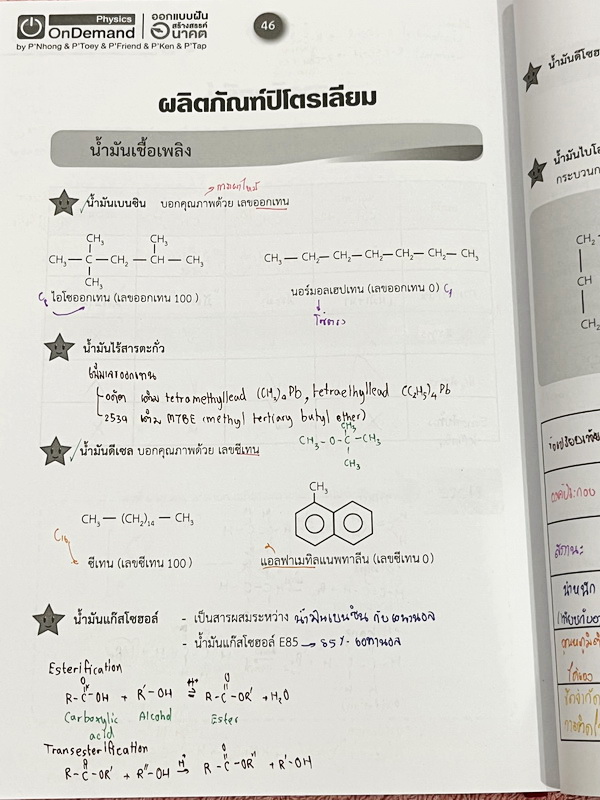 Physics
OnDemand
ออกแบบฝัน
สร้างสรรค์
อนาคต
by P'Nhong & P'Toey & P'Friend & P'Ken & P'Tap
46
ผลิตภัณฑ์ปิโตรเลียม
น้ำมันเชื้อเพลิง
น้ำมันเบนซิน บอกคุณภาพด้วย เลขออกเทน
CH3 CH3
CH3 — C — CH2 — CH — CH3
CH3
CH3 — CH2 — CH2 — CH2 — CH2 — CH2 — CH3
C8 ไอโซออกเทน (เลขออกเทน 100 )
นอร์มอลเฮปเทน (เลขออกเทน 0) C7
น้ำมันไร้สารตะกั่ว
เพิ่มเลขออกเทน
อดีต เติม tetramethyllead (CH3)4Pb, tetraethyllead (C2H5)4Pb
2534 เติม MTBE (methyl tertiary butyl ether)
CH3
CH3 - O - C - CH3
CH3
น้ำมันดีเซล บอกคุณภาพด้วย เลขซีเทน
CH3 — (CH2)14 — CH3
CH3
C16
ซีเทน (เลขซีเทน 100 )
แอลฟาเมทิลแนพทาลีน (เลขซีเทน 0)
น้ำมันแก๊สโซฮอล์ - เป็นสารผสมระหว่าง น้ำมันเบนซิน กับ เอทานอล
- น้ำมันแก๊สโซฮอล์ E85 → 85% เอทานอล
Esterification
O O
R - C - OH + R' - OH H+ ⇌ R - C - OR' + H2O
Carboxylic acid Alcohol Ester
Transesterification
O
R - C - OR' + R'' - OH H+ → R - C - OR'' + R' - OH
น้ำมันดีโซฮ
น้ำมันไบโอ
กระบวนก
CH2
CH
CH2
สถานะ
น้ำหนัก